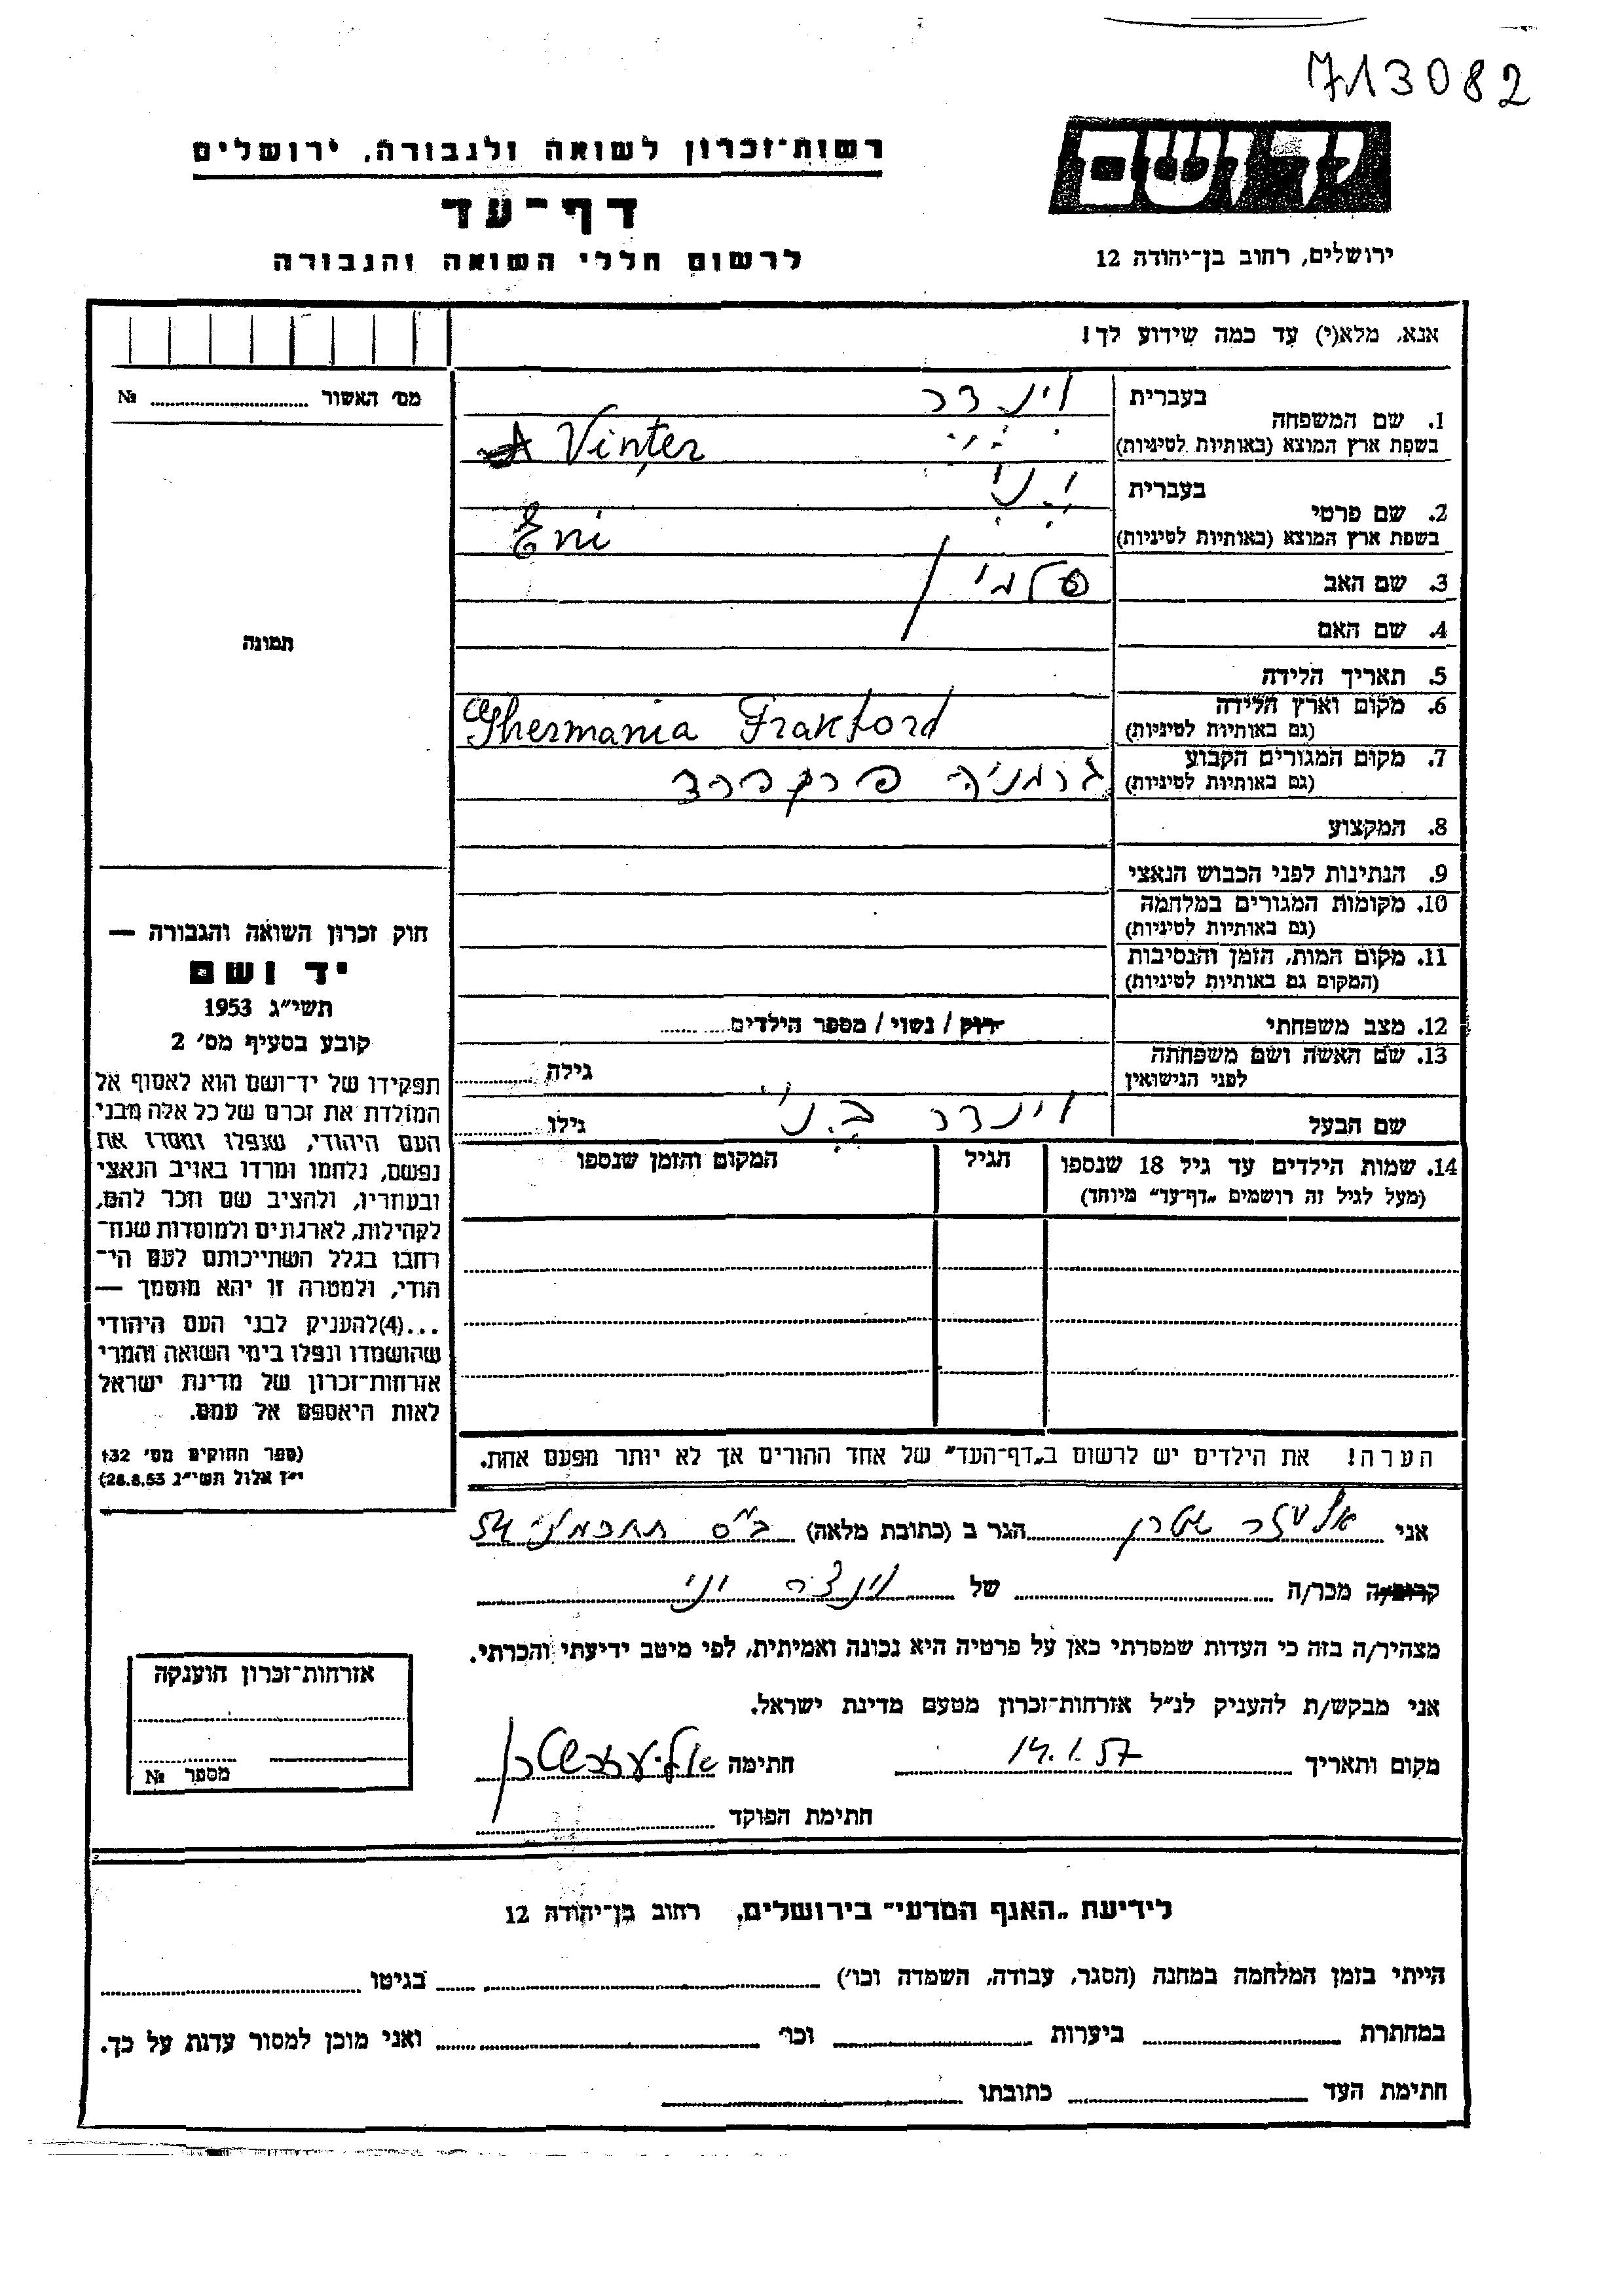 713082
יד ושם
רשות־זכרון לשואה ולגבורה, ירושלים
דף־עד
לרשום חללי השואה והגבורה
ירושלים, רחוב בן־יהודה 12
אנא, מלא(י) עד כמה שידוע לך!
מס' האשור № ........
תמונה
1. שם המשפחה
בעברית וינדר
בשפת ארץ המוצא (באותיות לטיניות) Vinter
2. שם פרטי
בעברית
בשפת ארץ המוצא (באותיות לטיניות) Eni
3. שם האב
4. שם האם
5. תאריך הלידה
6. מקום וארץ הלידה
(גם באותיות לטיניות) Ghermania Frakford
7. מקום המגורים הקבוע
(גם באותיות לטיניות) גרמניה פרקפרד
8. המקצוע
9. הנתינות לפני הכבוש הנאצי
10. מקומות המגורים במלחמה
(גם באותיות לטיניות)
11. מקום המות, הזמן והנסיבות
(המקום גם באותיות לטיניות)
12. מצב משפחתי רווק / נשוי / מספר הילדים........
13. שם האשה ושם משפחתה
לפני הנישואין גילה
שם הבעל וינדר גילו
14. שמות הילדים עד גיל 18 שנספו
(מעל לגיל זה רושמים „דף־עד" מיוחד)
הגיל
המקום והזמן שנספו
חוק זכרון השואה והגבורה —
יד ושם
תשי״ג 1953
קובע בסעיף מס׳ 2
תפקידו של יד־ושם הוא לאסוף אל
המולדת את זכרם של כל אלה מבני
העם היהודי, שנפלו ומסרו את
נפשם, נלחמו ומרדו באויב הנאצי
ובעוזריו, ולהציב שם וזכר להם,
לקהילות, לארגונים ולמוסדות שנח־
רבו בגלל השתייכותם לעם הי־
הודי, ולמטרה זו יהא מוסמך —
...(4)להעניק לבני העם היהודי
שהושמדו ונפלו בימי השואה והמרי
אזרחות־זכרון של מדינת ישראל
לאות היאספם אל עמם.
(ספר החוקים מס׳ 132
י״ז אלול תשי״ג 28.8.53)
הערה! את הילדים יש לרשום ב„דף־העד״ של אחד ההורים אך לא יותר מפעם אחת.
אני אליעזר שטרן הגר ב (כתובת מלאה) 54
קרוב/ה מכר/ה של וינדר
מצהיר/ה בזה כי העדות שמסרתי כאן על פרטיה היא נכונה ואמיתית, לפי מיטב ידיעתי והכרתי.
אני מבקש/ת להעניק לנ״ל אזרחות־זכרון מטעם מדינת ישראל.
מקום ותאריך 14.1.57 חתימה אליעזר שטרן
חתימת הפוקד
אזרחות־זכרון הוענקה
מספר №
לידיעת „האגף המדעי״ בירושלים, רחוב בן־יהודה 12
הייתי בזמן המלחמה במחנה (הסגר, עבודה, השמדה וכו') בגיטו
במחתרת ביערות וכו' ואני מוכן למסור עדות על כך.
חתימת העד כתובתו